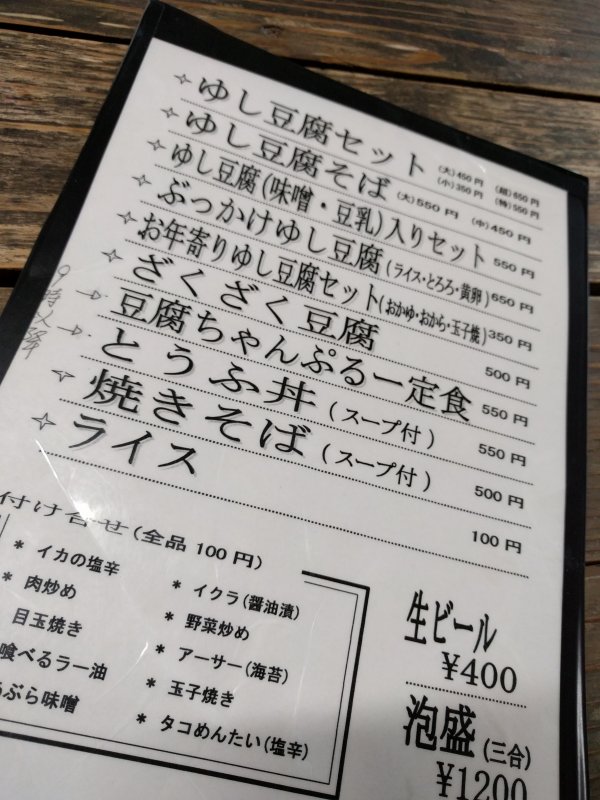 ✧ ゆし豆腐セット (大)450円 (超)650円
(小)350円 (特)550円
✧ ゆし豆腐そば (大)550円 (中)450円
✧ ゆし豆腐(味噌・豆乳)入りセット 550円
✧ ぶっかけゆし豆腐(ライス・とろろ・黄卵) 650円
✧ お年寄りゆし豆腐セット(おかゆ・おから・玉子焼) 350円
✧ ざくざく豆腐 500円
豆腐ちゃんぷるー定食 550円
とうふ丼(スープ付) 550円
✧ 焼きそば(スープ付) 500円
✧ ライス 100円
付け合せ(全品100円)
* イカの塩辛
* 肉炒め
目玉焼き
食べるラー油
あぶら味噌
* イクラ(醤油漬)
* 野菜炒め
* アーサー(海苔)
* 玉子焼き
* タコめんたい(塩辛)
生ビール
¥400
泡盛(三合)
¥1200